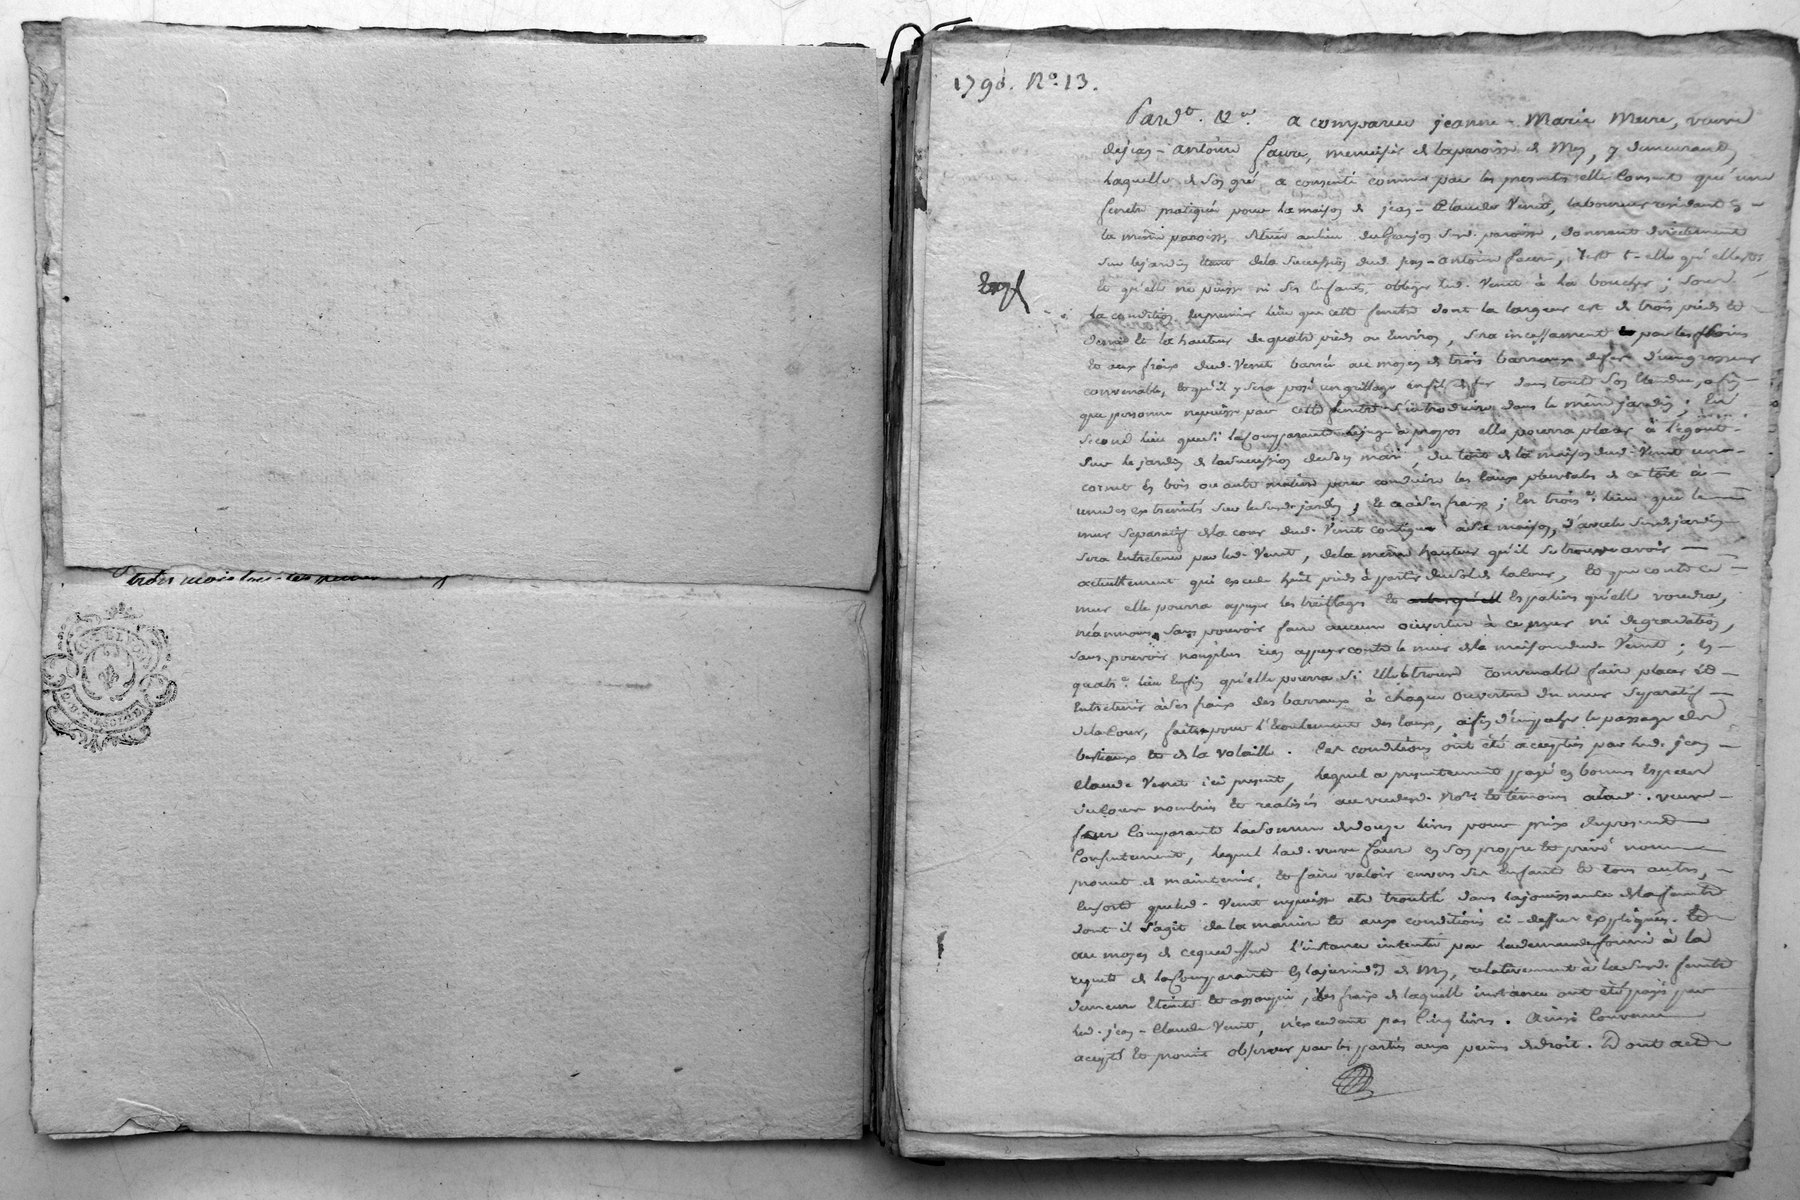 trois mois
1790. N.o 13.
Pard.t N.re a comparu jeanne-Marie Mure, veuve
de jean-antoine faure, menuisier de la paroisse de My, y demeurant,
laquelle de son gré a consenti comme par les presentes elle consent qu'une
fenetre pratiquée pour la maison de jean-Claude Venet, laboureur residant en
la même paroisse, située au lieu dud. paroisse, donnant directement
sur le jardin étant de la succession dud. jean-antoine faure, reste t-elle qu'elle est,
et qu'elle ne puisse ni ses enfants, obliger led. Venet à la boucher; sous
Exp
la condition en premier lieu que cette fenetre dont la largeur est de trois pieds et
demi et la hauteur de quatre pieds ou environ, sera incessament par les soins
et aux frais dud. Venet barrée au moyen de trois barreaux de fer d'une grosseur
convenable, et qu'il y sera posé un grillage en fil de fer dans toute son étendue, afin
que personne ne puisse par cette fenetre s'introduire dans le même jardin; En
second lieu que si la comparante le juge à propos elle pourra placer à l'égout
sur le jardin de la succession de son mari, du toit de la maison dud. Venet une
cornet en bois ou autre matiere pour conduire les eaux pluviales de ce toit à
une des extremités sur led. jardin, et à ses frais; En trois.e lieu que le
mur separatif de la cour dud. Venet contigue à sa maison, d'avec le susd. jardin
sera entretenu par led. Venet, de la même hauteur qu'il se trouve avoir
actuellement qui excede huit pieds à partir du sol de la cour, et que contre ce
mur elle pourra appuyer les treillages et espaliers qu'elle voudra,
néanmoins sans pouvoir faire aucune ouverture à ce mur ni degradation,
sans pouvoir non plus rien appuyer contre le mur de la maison dud. Venet; en
quatr.e lieu enfin qu'elle pourra si elle le trouve convenable faire placer et
entretenir à ses frais des barreaux à chaque ouverture du mur separatif
de la cour, faites pour l'écoulement des eaux, afin d'empecher le passage des
bestiaux et de la volaille. Ces conditions ont été acceptées par led. jean
Claude Venet ici present, lequel a presentement payé en bonnes especes
du cour nombrées et réalisées au vu dud. No.re et témoins à lad. veuve
faure comparante la somme de douze livres pour prix du present
consentement, lequel lad. veuve faure en son propre et privé nom
promet de maintenir, et faire valoir envers ses enfants et tous autres,
ensorte que led. Venet ne puisse etre troublé dans la jouissance de la fenetre
dont il s'agit de la maniere et aux conditions ci-dessus expliquées. Et
au moyen de ce que dessus l'instance intentée par la demande formée à la
requete de la Comparante en la jurid.on de My, relativement à la susd. fenetre
demeure éteinte et assoupie, les frais de laquelle instance ont été payés par
led. jean-Claude Venet, n'excedant pas Cinq livres. Ainsi Convenu
accepté et promis observer par les parties aux peines de droit. Dont acte